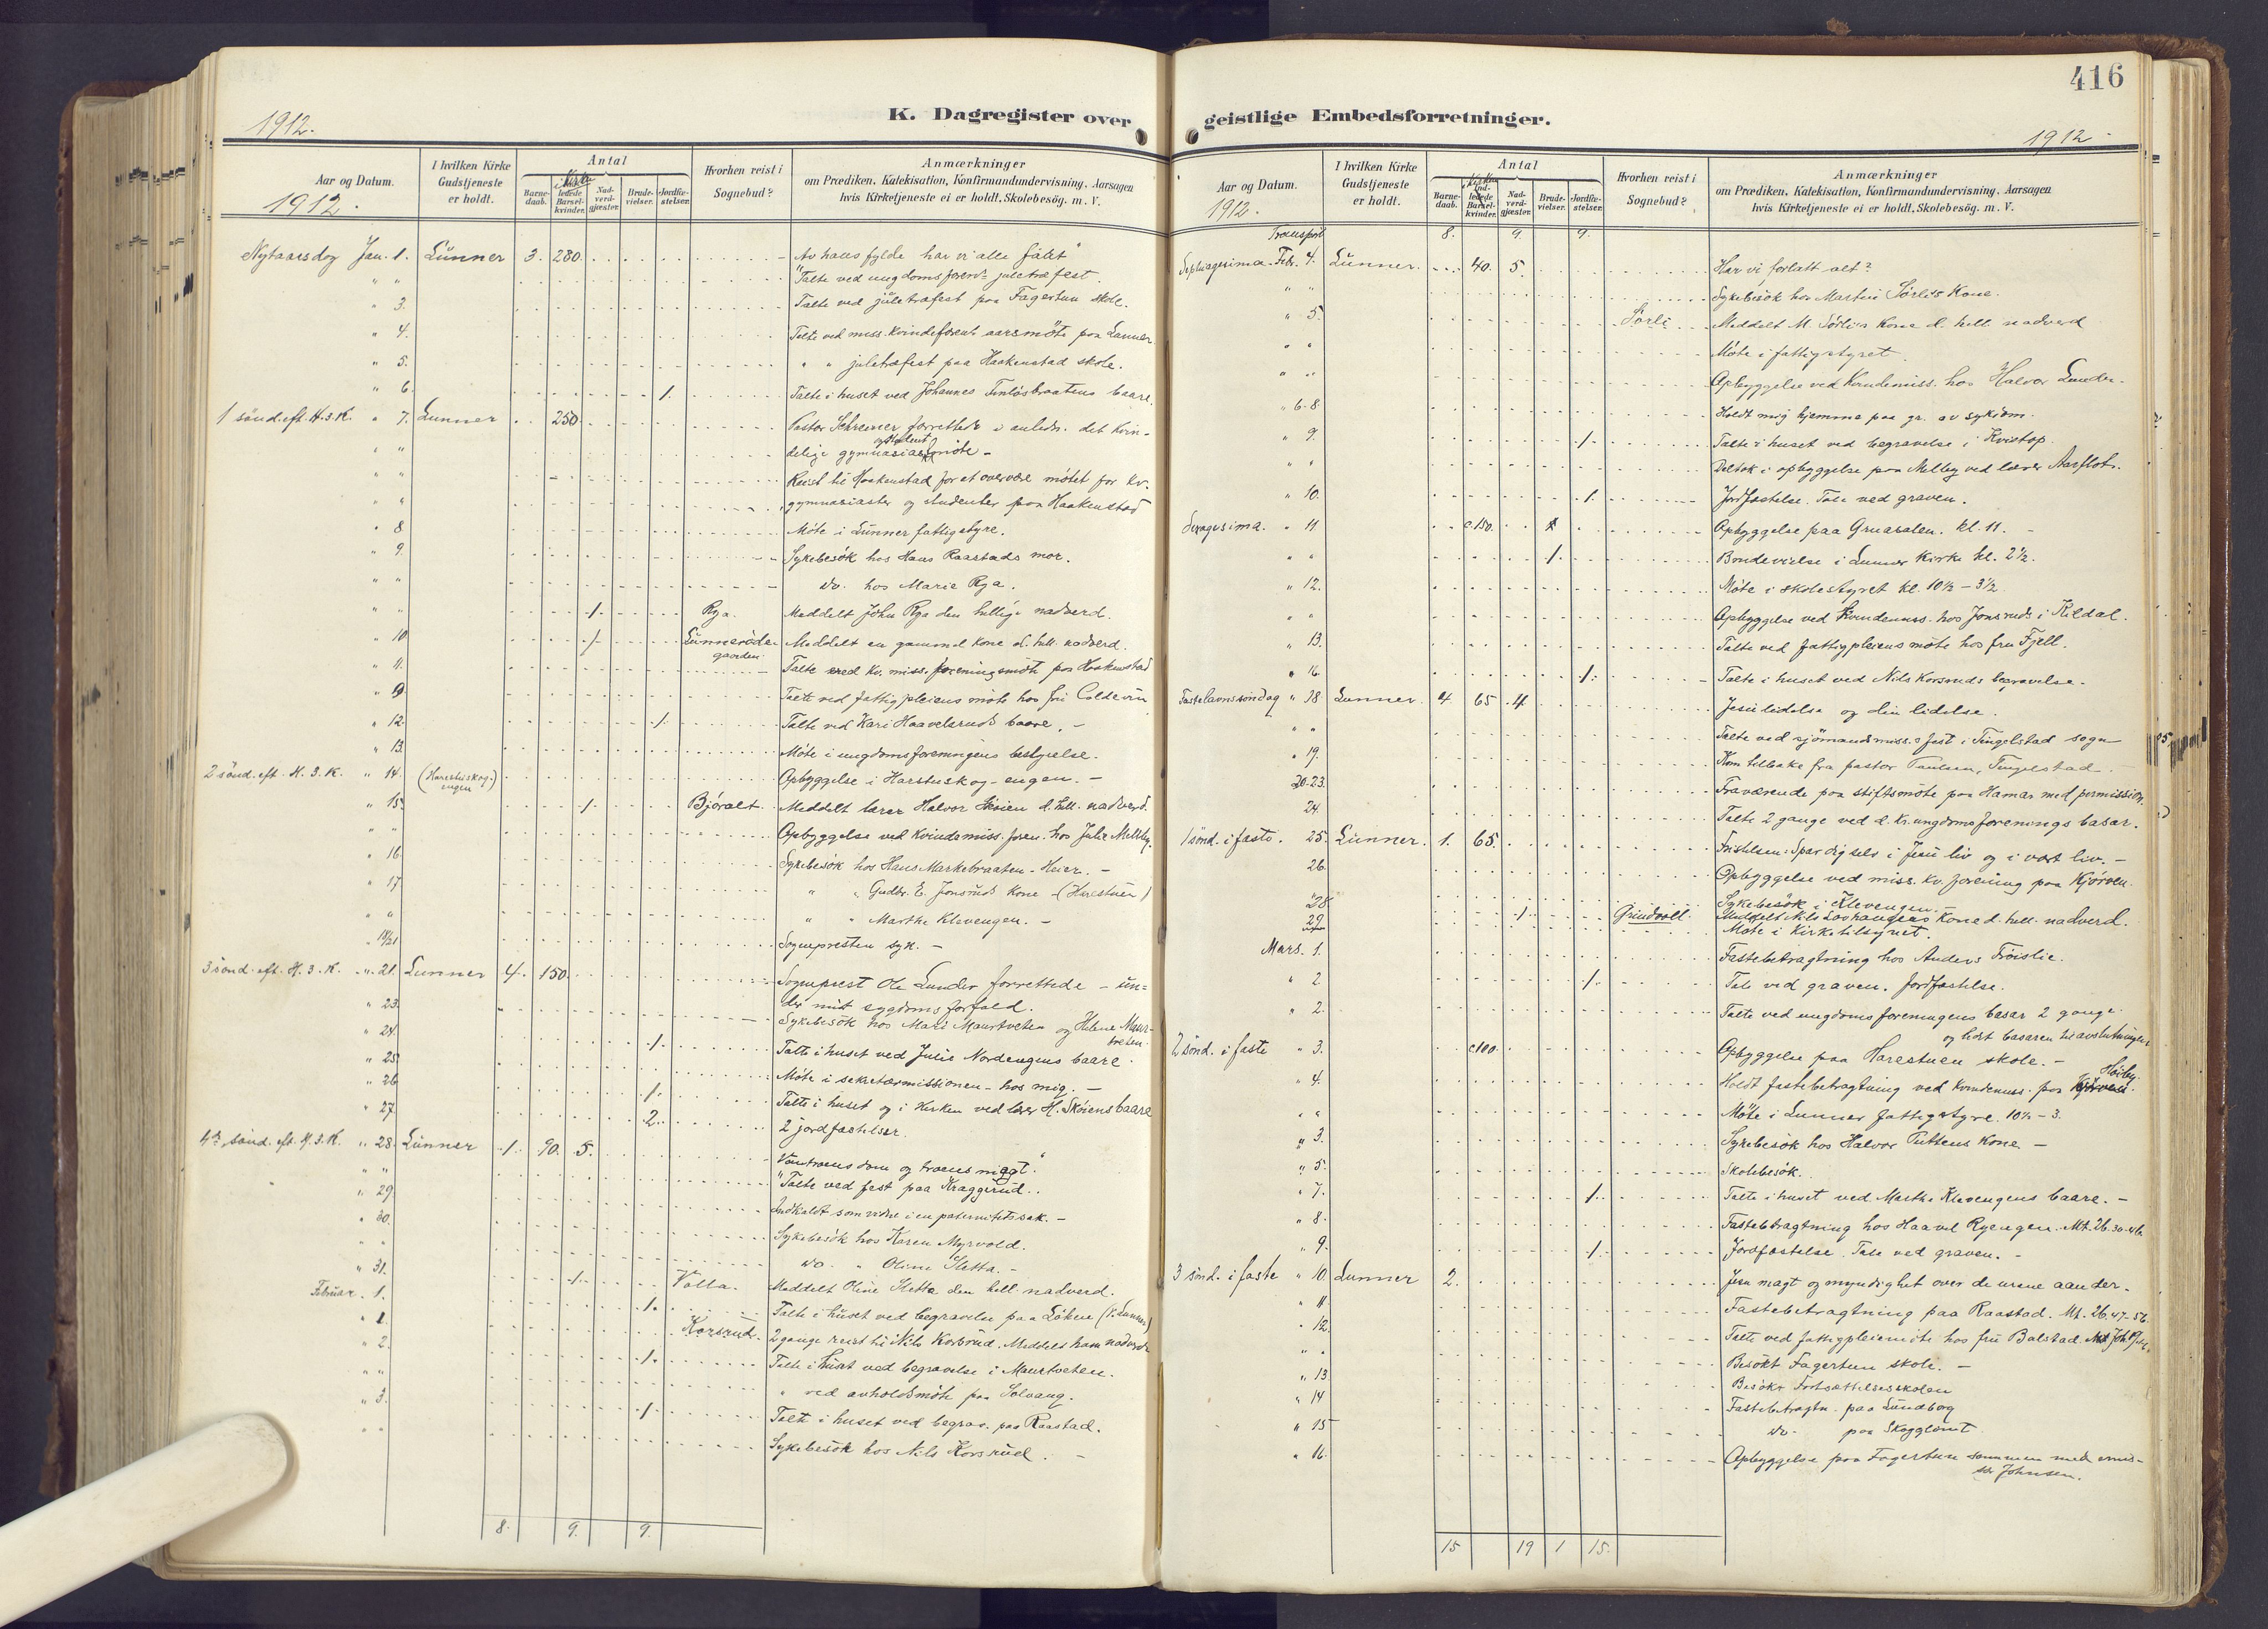 416
K. Dagregister over geistlige Embedsforretninger.
1912.
Aar og Datum.
1912.
I hvilken Kirke Gudstjeneste er holdt.
Antal
Barne-daab.
i Kirke
ledede Barsel-kvinder.
Nad-verd-gjæster.
Brude-vielser.
Jordfæ-stelser.
Hvorhen reist i Sognebud?
Anmærkninger
om Prædiken, Katekisation, Konfirmandundervisning, Aarsagen
hvis Kirketjeneste ei er holdt, Skolebesög. m. V.
Nytaarsdag Jan. 1. Lunner 3. 280. Av hans fylde har vi alle fått"
" " Talte ved ungdomsforen's juletræfest.
" 3. Talte ved juletræfest paa Fagertun skole.
" 4. Talte ved miss. kvindeforen's aarsmöte paa Lunner
" 5. " " juletræfest paa Haakenstad skole.
" 6. 1. Talte i huset ved Johannes Finlösbraatens baare.
1 sönd. eft. H.3.K. " 7. Lunner 250. Pastor Schreiner forrettede i anledn. det kvin-
" " delige gymnasiast student möte -
" " Reist til Haakenstad for at overvære mötet for kv.
" " gymnasiaster og studenter paa Haakenstad
" 8 Möte i Lunner fattigstyre.
" 9. Sykebesök hos Hans Raastads mor.
" " do. hos Marie Rya.
" " 1. Rya. Meddelt John Rya den hellige nadverd.
" 10 1. Lunneröde-gaarden Meddelt en gammel kone d. hell. nadverd.
" 11. Talte ved kv. miss. foreningsmöte paa Haakenstad
" 19. Talte ved fattigpleiens möte hos fru Coldevin
" 12. 1. Talte ved Kari Haavelsruds baare. -
" 13. Möte i ungdomsforeningens bestyrelse.
2 sönd. eft. H.3.K. " 14. (Harestuskog-engen) Opbyggelse i Harstuskog-engen. -
" 15. 1. Björalt. Meddelt lærer Halvor Skøien d. hell. nadverd.
" " Opbyggelse ved kvindemiss. foren. hos Julie Mellby.
" 16. Sykebesök hos Hans Markebraaten - Heier. -
" 17 " " Gudbr. E. Jonsruds kone - (Harestuen)
" " " " Marthe Klevengen. -
" 18/21 Sognepresten syk. -
3 sönd. eft. H.3.K. " 21. Lunner 4. 150. Sogneprest Ole Lunder forrettede - un-
der mit sygdoms forfald.
" 23. Sykebesök hos Mari Maurtveten og Helene Maur-tveten.
" 24. 1. Talte i huset ved Julie Nordengens baare.
" 25 Möte i sekretærmissionen - hos mig. -
" 26 1. Talte i huset og i kirken ved lærer H. Sköiens baare
" 27. 2. 2 jordfæstelser.
4de sönd. eft. H.3.K. " 28. Lunner 1. 90. 5. Vantroens dom og troens magt."
" " Talte ved fest paa Kraggerud.
" 29. Indkaldt som vidne i en paternitetssak. -
" 30. Sykebesök hos Karen Myrvold.
" " do. " Oline Sletta. -
" 31. 1. Volla. Meddelt Oline Sletta den hell. nadverd.
Februar. 1. 1. Talte i huset ved begravelse paa Löken (v. Lunner)
" 1. Korsrud. 2 gange reist til Nils Korsrud. Meddelt ham nadverd.
" 2. 1. Talte i huset ved begravelse i Maurtveten.
" " " ved avholdsmöte paa Solvang.
" 3. 1. Talte i huset ved begrav. paa Raastad.
" " Sykebesök hos Nils Korsrud. -
8. 9. 9.
1912
Aar og Datum.
1912.
I hvilken Kirke Gudstjeneste er holdt.
Antal
Barne-daab.
i Kirken
Ind-ledede Barsel-kvinder.
Nad-verd-gjæster.
Brude-vielser.
Jordfæ-stelser.
Hvorhen reist i Sognebud?
Anmærkninger
om Prædiken, Katekisation, Konfirmandundervisning, Aarsagen
hvis Kirketjeneste ei er holdt, Skolebesög. m. V.
Transport 8. 9. 9.
Septuagesima. Febr. 4. Lunner. 40. 5. Har vi forlatt alt?
" " Sykebesök hos Martin Sörlis kone.
" 5. Sörli Meddelt M. Sörlis kone d. hell. nadverd
" " Möte i fattigstyret.
" " Opbyggelse ved kvindemiss. hos Halvor Lunder.
" 6-8. Holdt mig hjemme paa gr. av sykdom.
" 9. 1. Talte i huset ved begravelse i Kvistop.
" " Deltok i opbyggelse paa Mellby ved lærer Aarflot.
" 10. 1. Jordfæstelse. Tale ved graven.
Sexagesima. " 11 c. 150. Opbyggelse paa Gruasalen. kl. 11. -
" " 1. Brudevielse i Lunner Kirke kl. 2½.
" 12. Möte i skolestyret kl. 10½ - 3½
" " Opbyggelse ved kvindemiss. hos Jonsruds i Kildal.
" 13. Talte ved fattigpleiens möte hos fru Fjell.
" 16. 1. Talte i huset ved Nils Korsruds begravelse.
Fastelavnssöndag " 18 Lunner. 4 65 4. Jesu lidelse og din lidelse.
" " Talte ved sjömandsmiss.s fest i Tingelstad sogn
" 19. Kom tilbake fra pastor Paulsen, Tingelstad. -
20-23. Fraværende paa stiftsmöte paa Hamar med permission.
24. Talte 2 gange ved d. kr. ungdomsforenings basar.
1 sönd. i faste. 25. Lunner. 1. 65. Fristelsen: Spar dig selv i Jesu liv og i vort liv. -
26. Opbyggelse ved miss. kv. forening paa Kjörven.
"28 Sykebesök i Klevengen. -
29. 1. Grindvoll Meddelt Nils Lovhaugens kone d. hell. nadverd.
Möte i kirketilsynet.
Mars. 1. Fastebetragtning hos Anders Fröislie.
" 2 1. Tale ved graven. Jordfæstelse.
" 2. Talte ved ungdomsforeningens basar 2 gange
og ledet basaren til avslutningen.
2 sönd. i faste " 3. c100. Opbyggelse paa Harestuen skole. -
" 4. Holdt fastebetragtning ved kvindemiss. paa Höiby.
" " Möte i Lunner fattigstyre. 10½ - 3.
" 3. Sykebesök hos Halvor Tuttens kone -
" 5. Skolebesök.
" 7. 1. Talte i huset ved Marthe Klevengens baare. -
" 8. Fastebetragtning hos Haavel Ryengen. Mt. 26.30-46
" 9. 1. Jordfæstelse. Tale ved graven. -
3 sönd. i faste " 10. Lunner 2. Jesu magt og myndighet over de urene aander.
" 11. Fastebetragtning paa Raastad. Mt. 26.47-56
" 12. Talte ved fattigpleiemöte hos fru Balstad.
" " Besökt Fagertun skole. -
" 13 Besökt Fortsættelsesskolen
" 14 Fastebetragtn. paa Lundborg
" 15 do. paa Skogglimt
" 16. Opbyggelse paa Fagertun sammen med emis-
sær Johnsen.
15 19 1 15.